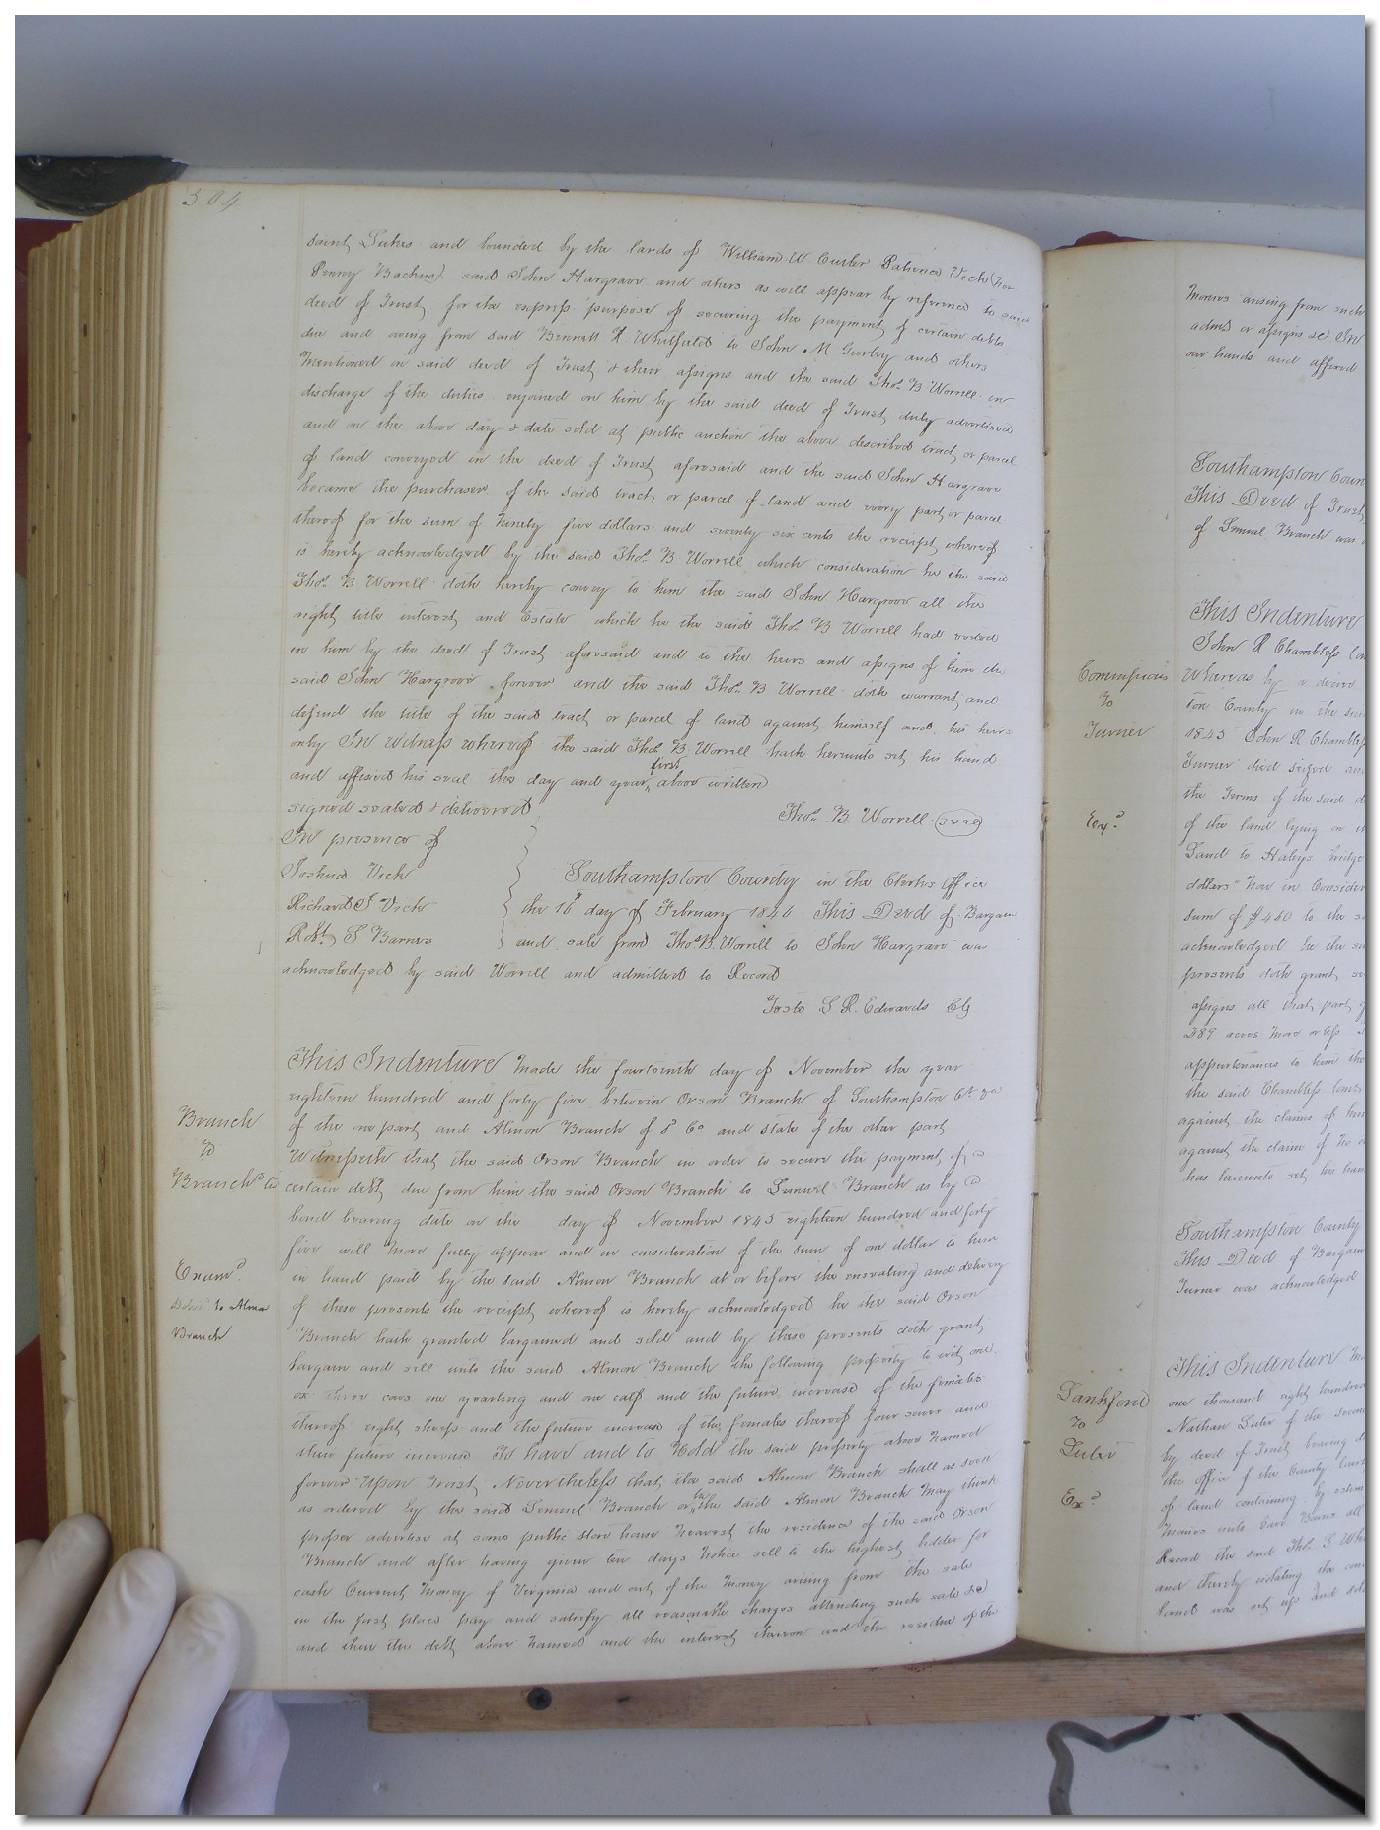 304
saint Lukes and bounded by the lands of William W Cutler Patience Vick (now
Penny Vachus) said John Hargrave and others as will appear by reference to said
deed of Trust for the express purpose of securing the payment of certain debts
due and owing from said Bennett H. Whitfield to John M Gurley and others
Mentioned in said deed of Trust & their assigns and the said Thos. B. Worrell in
discharge of the duties enjoined on him by the said deed of Trust duly advertised
and on the above day & date sold at public auction the above described tract or parcel
of land conveyed in the deed of Trust aforesaid and the said John Hargrave
became the purchaser of the said tract or parcel of land and every part or parcel
thereof for the sum of Ninety five dollars and seventy six cents the receipt whereof
is hereby acknowledged by the said Thos. B. Worrell which consideration he the said
Thos. B. Worrell doth hereby convey to him the said John Hargrave all the
right title interest and Estate which he the said Thos. B Worrell had vested
in him by the deed of Trust aforesaid and to the heirs and assigns of him the
said John Hargrave forever and the said Thos. B Worrell doth warrant and
defend the title of the said tract or parcel of land against himself and his heirs
only In witness whereof the said Thos. B. Worrell hath hereunto set his hand
and affixed his seal the day and year first above written
signed sealed & delivered
Thos. B. Worrell (seal)
In presence of
Joshua Vick
Richard J Vick
Robt. S Barnes
Southampton County in the Clerks Office
the 16th day of February 1846 This Deed of Bargain
and sale from Thos B. Worrell to John Hargrave was
acknowledged by said Worrell and admitted to Record
Teste L R. Edwards Clk
Branch
to
Branch
Examd.
Almon
Branch
This Indenture Made the fourteenth day of November the year
eighteen hundred and forty five between Orson Branch of Southampton Co. Va
of the one part and Almon Branch of sd Co and state of the other part
Witnesseth that the said Orson Branch in order to secure the payment of a
certain debt due from him the said Orson Branch to Lemuel Branch as by a
bond bearing date on the day of November 1845 eighteen hundred and forty
five will more fully appear and in consideration of the sum of one dollar to him
in hand paid by the said Almon Branch at or before the ensealing and delivery
of these presents the receipt whereof is hereby acknowledged he the said Orson
Branch hath granted bargained and sold and by these presents doth grant
bargain and sell unto the said Almon Branch the following property to wit one
ox three cows one yearling and one calf and the future increase of the females
thereof eight sheep and the future increase of the females thereof four sows and
their future increase To have and to Hold the said property above named
forever Upon Trust Nevertheless that the said Almon Branch shall as soon
as ordered by the said Lemuel Branch or the said Almon Branch May think
proper advertise at some public store house nearest the residence of the said Orson
Branch and after having given ten days notice sell to the highest bidder for
cash Current money of Virginia and out of the money arising from the sale
in the first place pay and satisfy all reasonable charges attending such sale &c
and then the debt above named and the interest thereon and the residue of the
Monies arising from such
adms or assigns &c In
our hands and affixed
Southampton Coun
This Deed of Trust
of Lemuel Branch was
Commissions
to
Turner
This Indenture
John R Chambless
Whereas by a decree
ton County in the
1845 John R Chambless
Turner died seized
the Terms of the said
of the land lying on
Land to Haleys bridge
dollars" Now in Consider
sum of $450 to the
acknowledged he the
presents doth grant
assigns all that part
389 acres more or less
appurtenances to him the
the said Chambless
against the claims of
against the claim of
has hereunto set his hand
Southampton County
This Deed of Bargain
Turner was acknowledged
Lankford
to
Luter
Exd.
This Indenture
one thousand eight hundred
Nathan Luter of the second
by deed of Trust bearing
the office of the County
of land containing by
Record the said Thos. G
and thereby